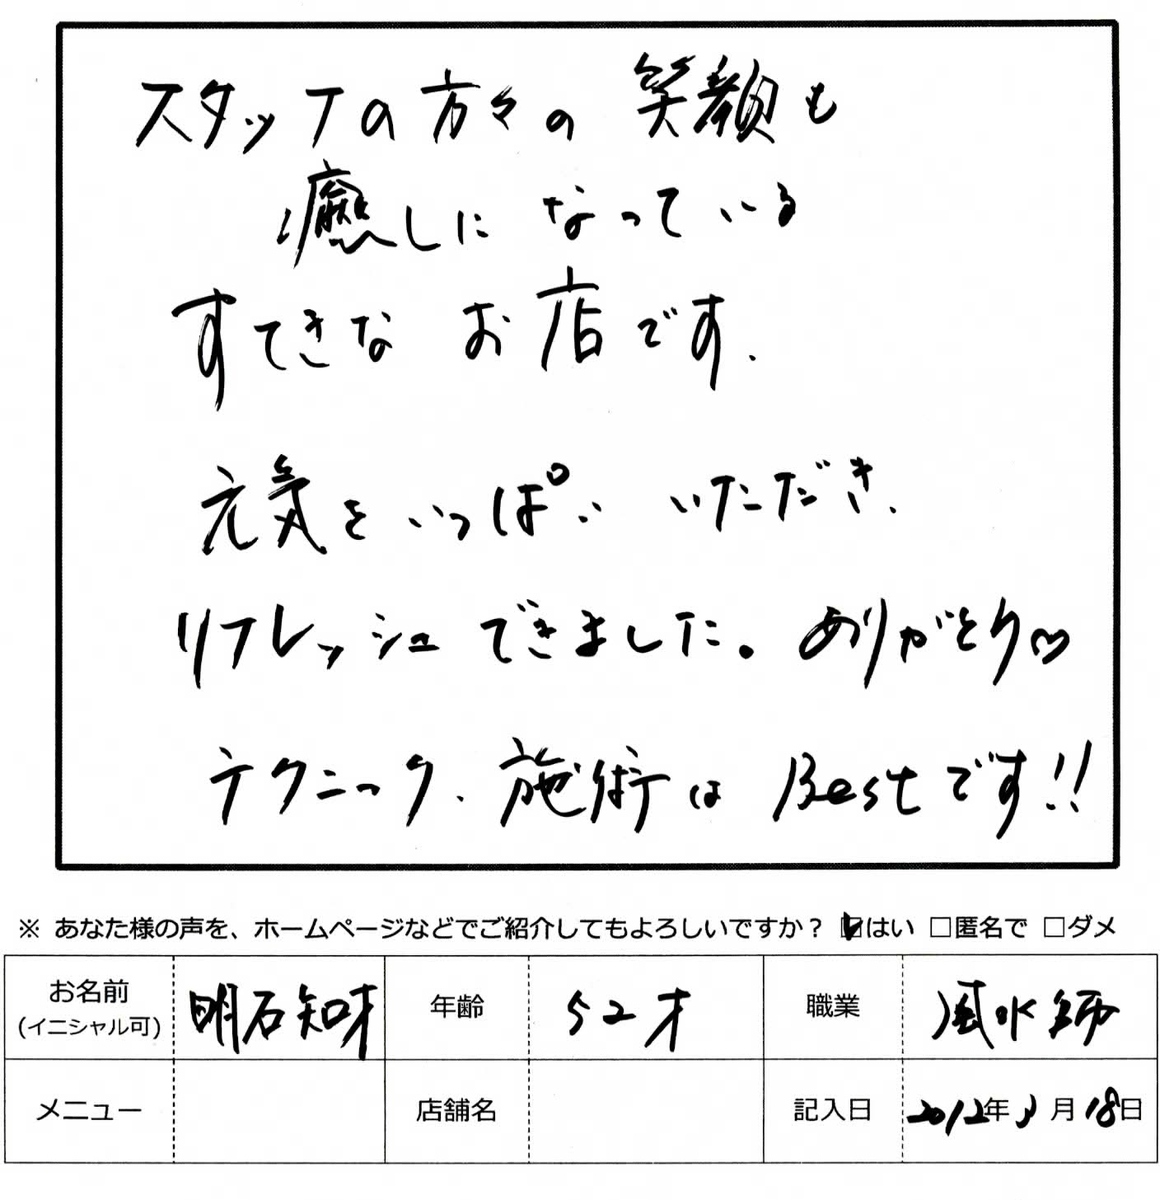 スタッフの方々の 笑顔も
癒しに なっている
すてきな お店です.
元気をいっぱい いただき.
リフレッシュ できました。 ありがとう♡
テクニック. 施術は Bestです!!
※ あなた様の声を、ホームページなどでご紹介してもよろしいですか? ☑はい □匿名で □ダメ
お名前 明石知才 年齢 52才 職業 風水師
(イニシャル可)
メニュー 店舗名 記入日 2012年3月18日